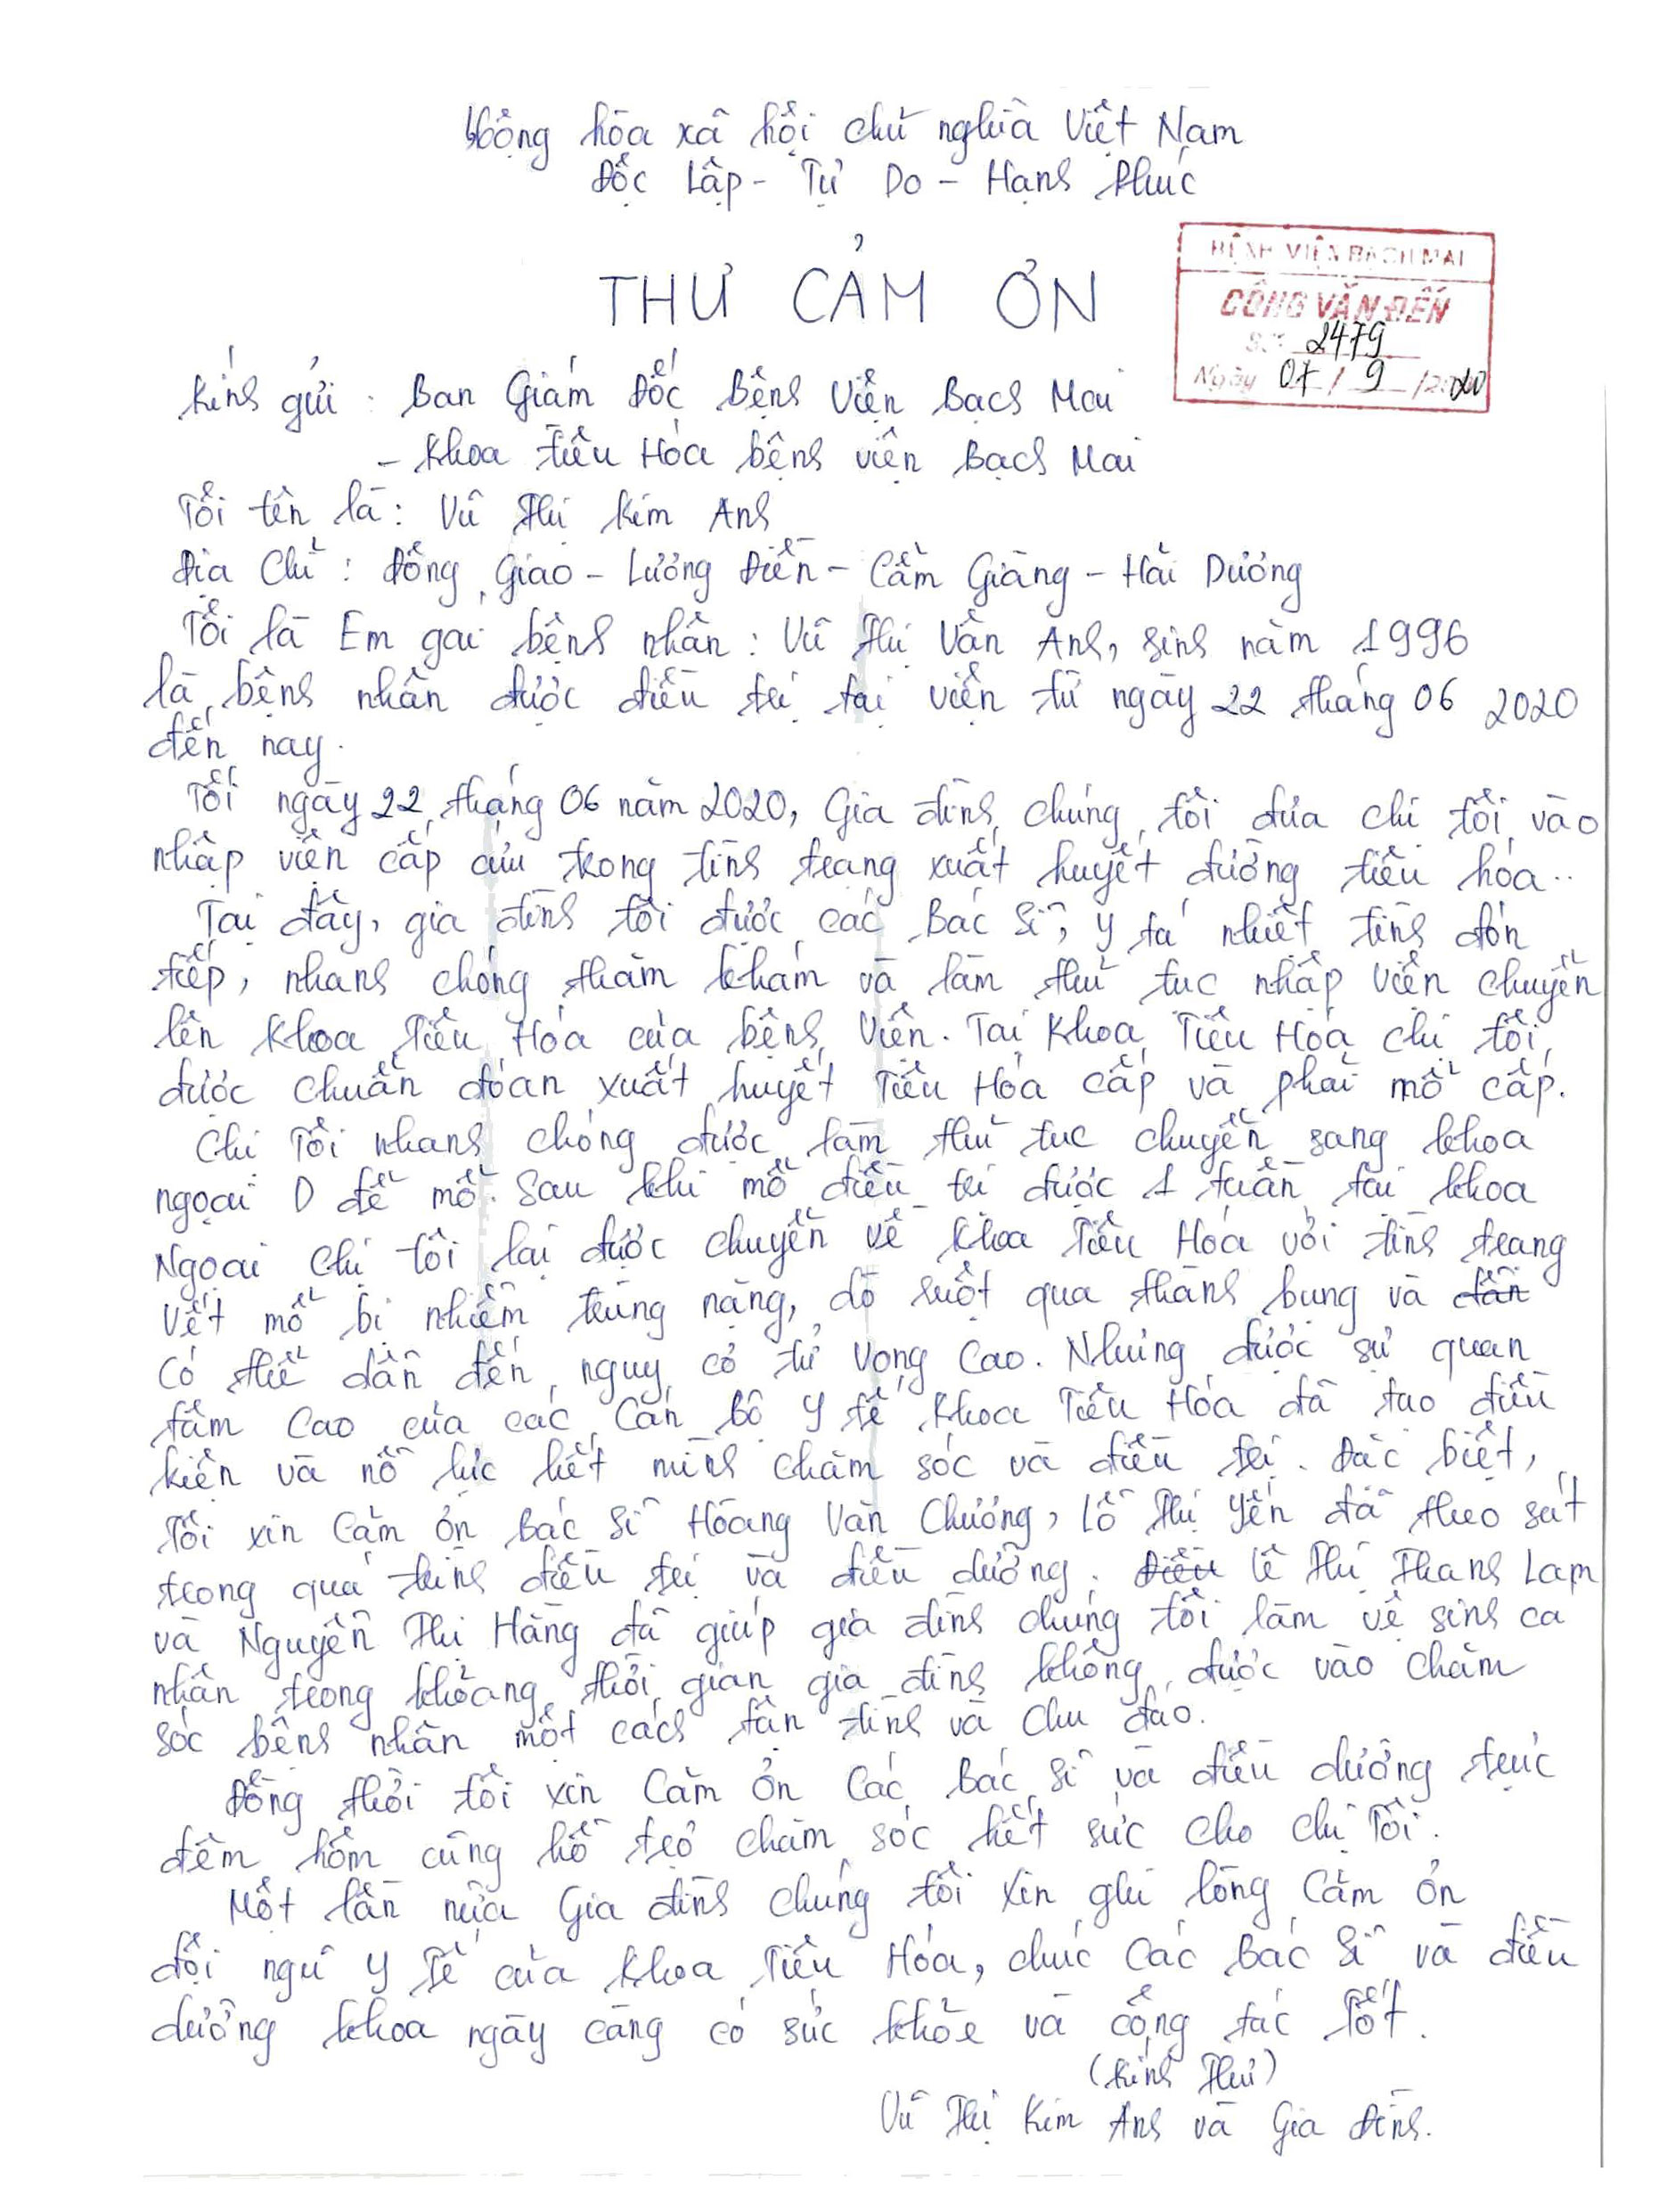 Cộng hòa xã hội chủ nghĩa Việt Nam
Độc Lập - Tự Do - Hạnh Phúc
BỆNH VIỆN BẠCH MAI
THƯ CẢM ƠN
CÔNG VĂN ĐẾN
Số: 2479
Ngày 07 / 9 / 2020
Kính gửi : Ban Giám Đốc Bệnh Viện Bạch Mai
- Khoa Tiêu Hóa bệnh viện Bạch Mai
Tôi tên là : Vũ Thị Kim Anh
Địa Chỉ : Đông Giao - Lương Điền - Cẩm Giàng - Hải Dương
Tôi là Em gái bệnh nhân : Vũ Thị Vân Anh, sinh năm 1996
là bệnh nhân được điều trị tại viện từ ngày 22 tháng 06 2020
đến nay.
Tối ngày 22 tháng 06 năm 2020, Gia đình chúng tôi đưa chị tôi vào
nhập viện cấp cứu trong tình trạng xuất huyết đường tiêu hóa..
Tại đây, gia đình tôi được các Bác sĩ, y tá nhiệt tình đón
tiếp, nhanh chóng thăm khám và làm thủ tục nhập viện chuyển
lên khoa Tiêu Hóa của bệnh viện. Tại Khoa Tiêu Hóa chị tôi
được chuẩn đoán xuất huyết Tiêu Hóa cấp và phải mổ cấp.
Chị Tôi nhanh chóng được làm thủ tục chuyển sang khoa
ngoại D để mổ. Sau khi mổ điều trị được 1 tuần tại khoa
Ngoại chị tôi lại được chuyển về khoa Tiêu Hóa với tình trạng
vết mổ bị nhiễm trùng nặng, dò ruột qua thành bụng và dẫn
có thể dẫn đến nguy cơ tử vong cao. Nhưng được sự quan
tâm cao của các Cán bộ y tế khoa Tiêu Hóa đã tạo điều
kiện và nỗ lực hết mình chăm sóc và điều trị. Đặc biệt,
Tôi xin Cảm ơn Bác Sĩ Hoàng Văn Chương, Lỗ Thị Yến đã theo sát
trong quá trình điều trị và điều dưỡng. Điều Lê Thị Thanh Lam
và Nguyễn Thị Hằng đã giúp gia đình chúng tôi làm vệ sinh cá
nhân trong khoảng thời gian gia đình không được vào chăm
sóc bệnh nhân một cách tận tình và chu đáo.
Đồng thời tôi xin Cảm ơn Các Bác sĩ và điều dưỡng trực
đêm hôm cũng hỗ trợ chăm sóc hết sức cho chị Tôi.
Một lần nữa Gia đình chúng tôi xin ghi lòng Cảm ơn
đội ngũ y Tế của khoa Tiêu Hóa, chúc Các Bác Sĩ và điều
dưỡng khoa ngày càng có sức khỏe và công tác Tốt.
(Kính Thư)
Vũ Thị Kim Anh và Gia đình.